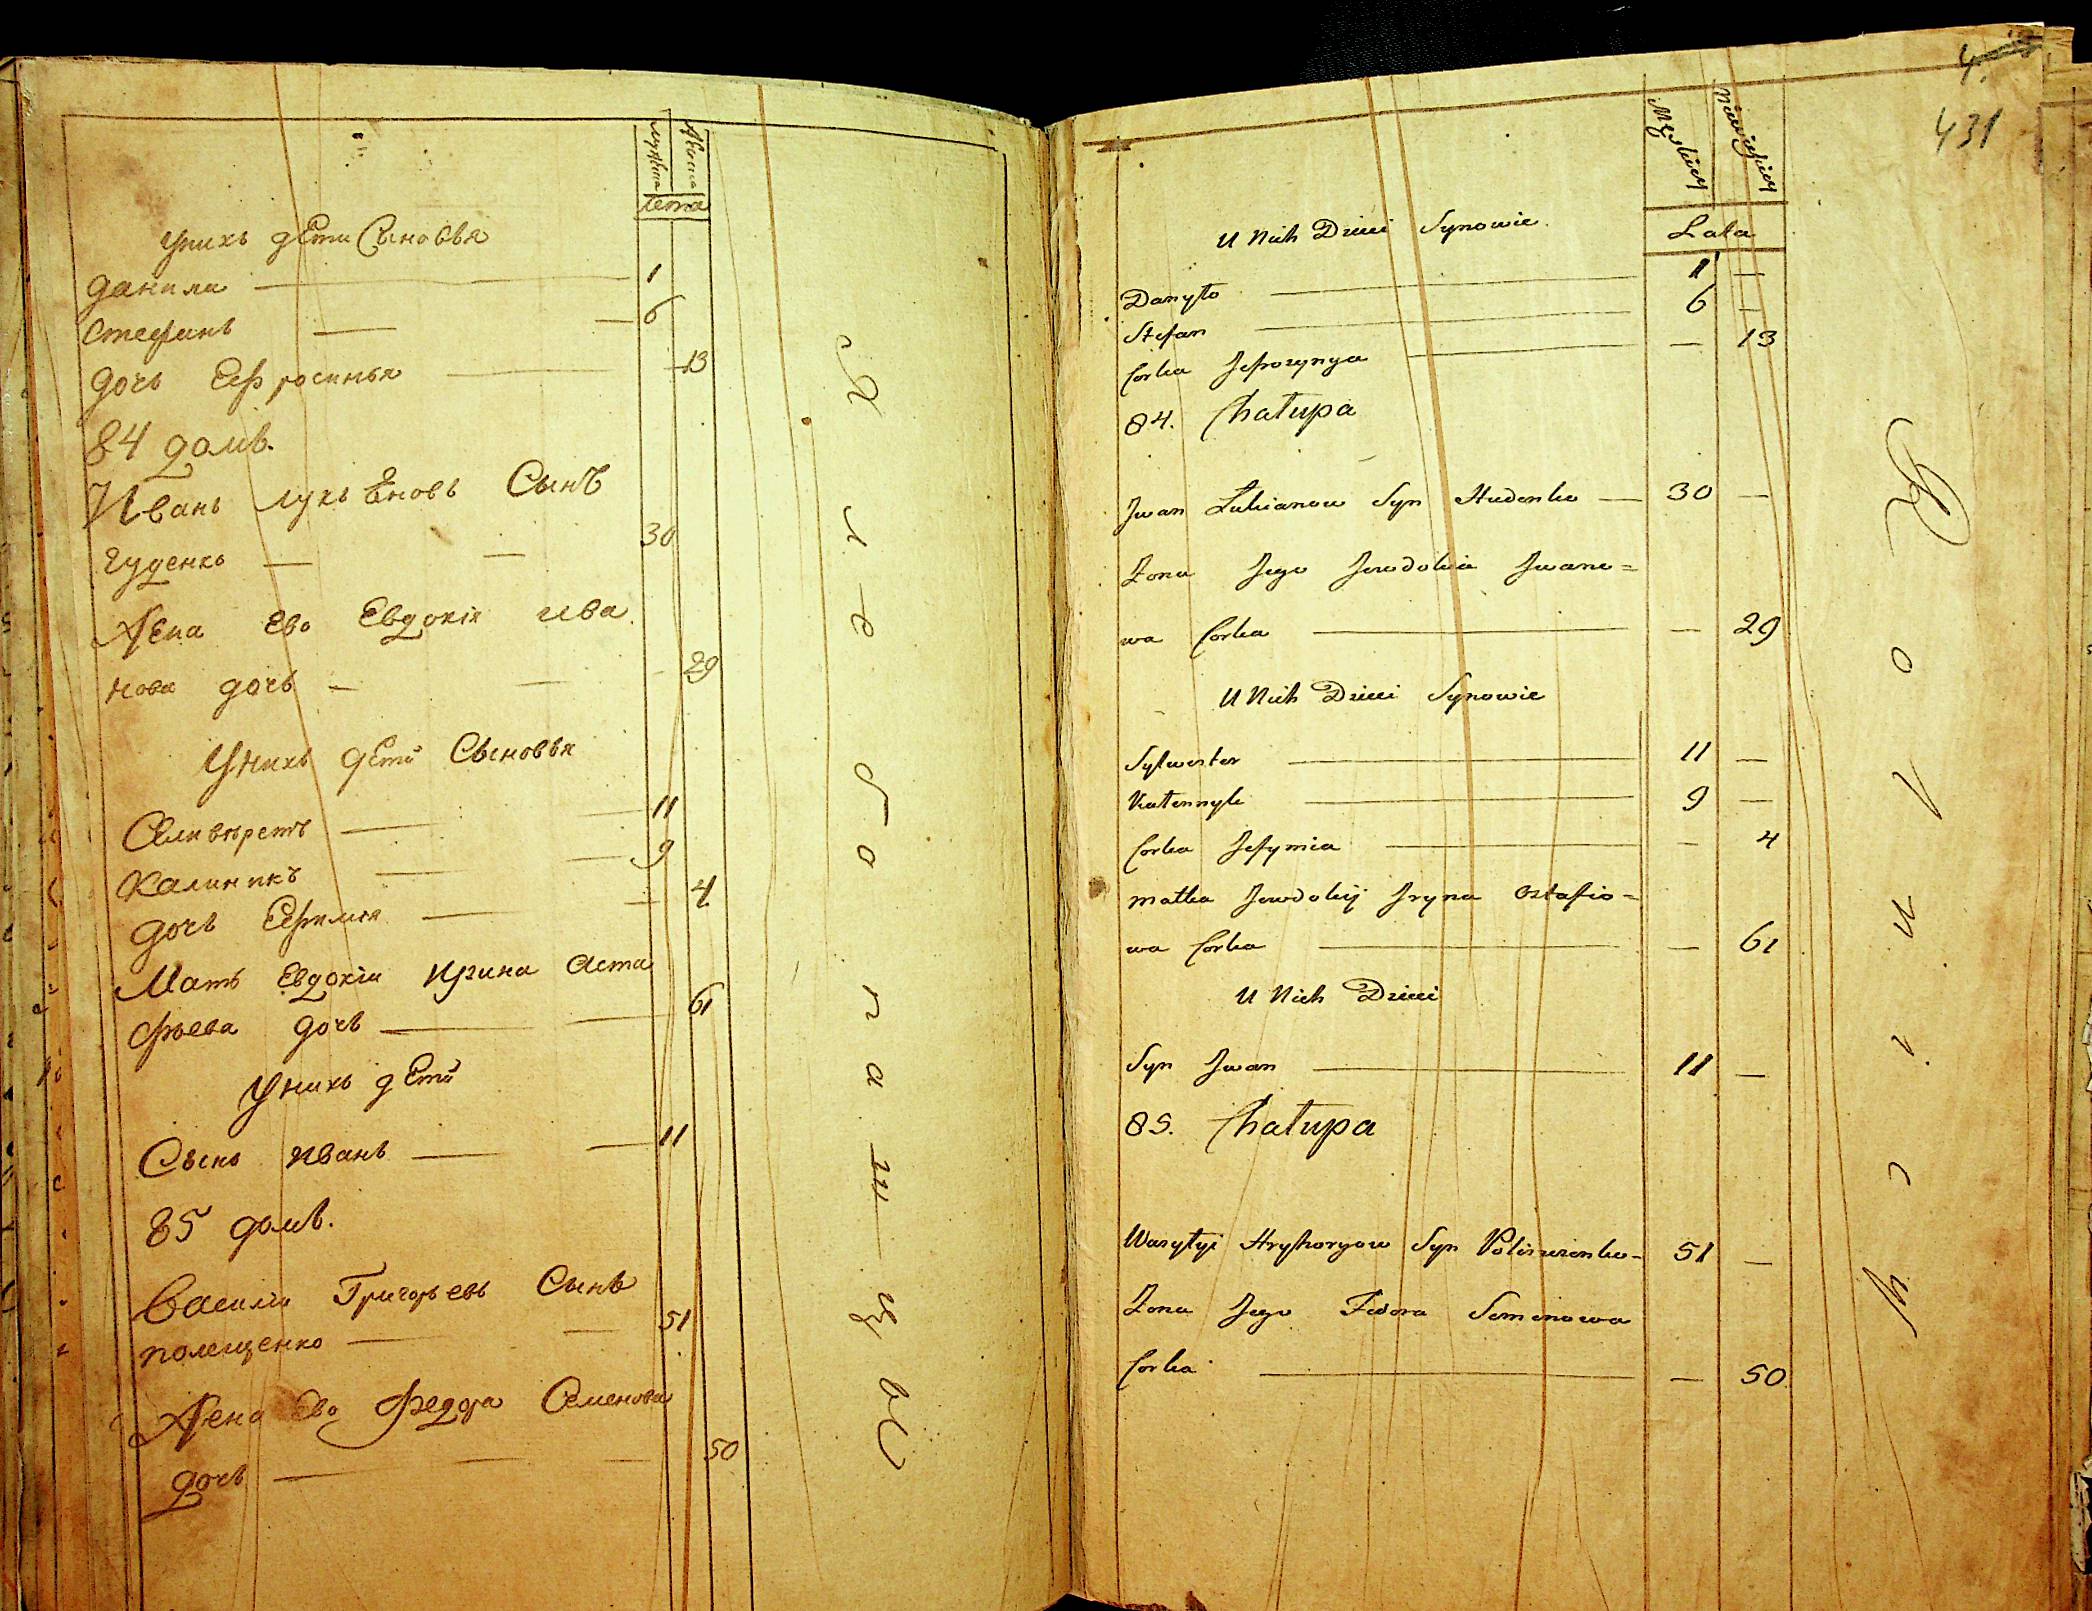 мужска
женска
лета
унихъ дѣти Сыновья
Данила 1
Стефанъ 6
дочь Ефросинья 13
84 домъ.
Иванъ лукьѣновъ Сынъ
гуденко 30
Жена Ево Евдокія ива
нова дочь 29
Унихъ дѣти Сыновья
Селивѣрстъ 11
Калиникъ 9
дочь Ефимья 4
Мать Евдокіи ирина Аста
фьева дочь 61
Унихъ дѣти
Сынъ иванъ 11
85 домъ.
Василіи Григорьевъ Сынъ
полещенко 51
Жена Ево Федора Семенова
дочь 50
Хлебопашцы
4.
431
Męskiey
Niewieskiey
Lata
U Nich Dzieci Synowie
Danyło 1 —
Stefan 6 —
Corka Jefrozynya — 13
84. Chałupa
Jwan Łukianow Syn Hudenko — 30 —
Żona Jego Jewdokia Jwano=
wa Corka — 29
U Nich Dzieci Synowie
Sylwester 11 —
Kalennyk 9 —
Corka Jefymia — 4
matka Jewdokij Jryna Ostafio=
wa Corka — 61
U Nich Dzieci
Syn Jwan 11 —
85. Chałupa
Wasylyi Hryhoryow Syn Poliszczenko — 51 —
Żona Jego Fedora Semenowa
Corka — 50
Rolnicy